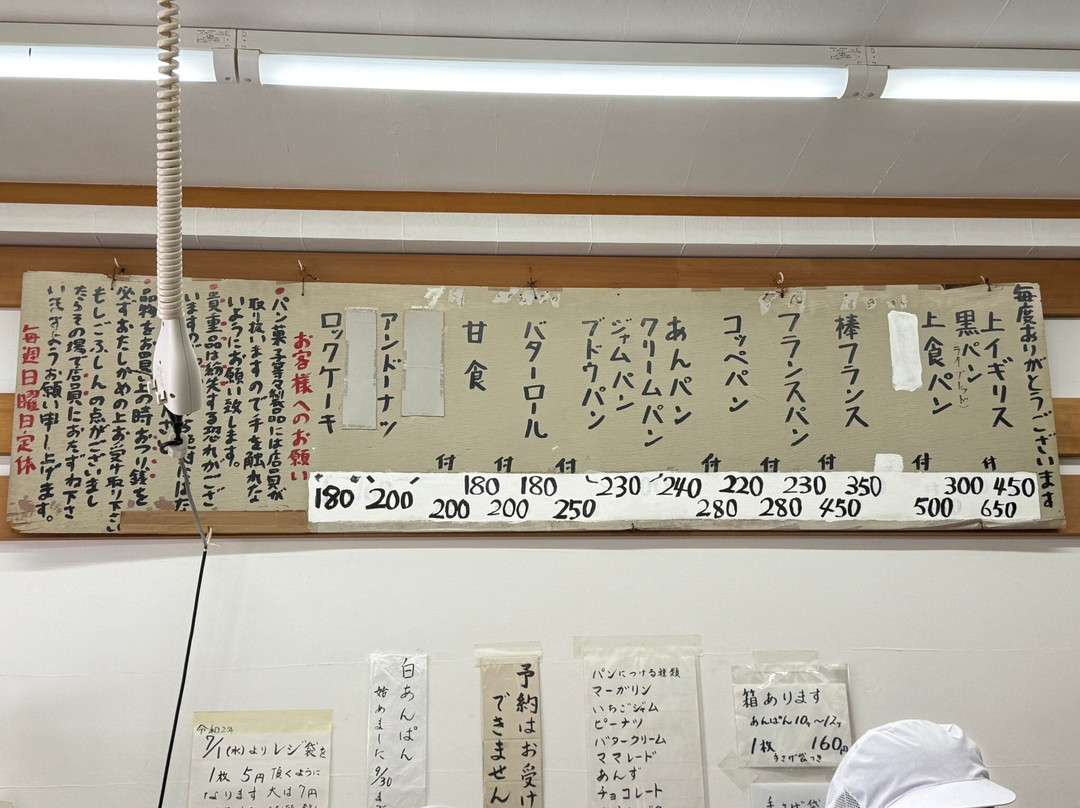 毎度ありがとうございます
上イギリス
黒パン
(ライブレッド)
上食パン
棒フランス
フランスパン
コッペパン
あんパン
クリームパン
ジャムパン
ブドウパン
バターロール
甘食
アンドーナツ
ロックケーキ
付 付 付 付 付 付 付 付
450 300 350 230 220 240 230 180 180 200 180
650 500 450 280 280 250 200 200
お客様へのお願い
パン菓子等々製品には店員が
取り扱いますので手を触れない
ようにお願い致します。
貴重品は紛失する恐れがござ
品物をお買上の時おつり銭を
必ずおたしかめの上お受け取り下さい
もしごふしんの点がございまし
たらその場で店員におたずね下さ
いますようお願い申し上げます。
毎週日曜日定休
箱あります
あんぱん10ケ〜12ケ
1枚 160円
手さげ袋つき
手さげ袋
パンにつける種類
マーガリン
いちごジャム
ピーナツ
バタークリーム
ママレード
あんず
チョコレート
予約はお受け
できません
白あんぱん
始めました 9/30
令和2年
7/1(水)よりレジ袋を
1枚 5円 頂くように
なります 大は7円